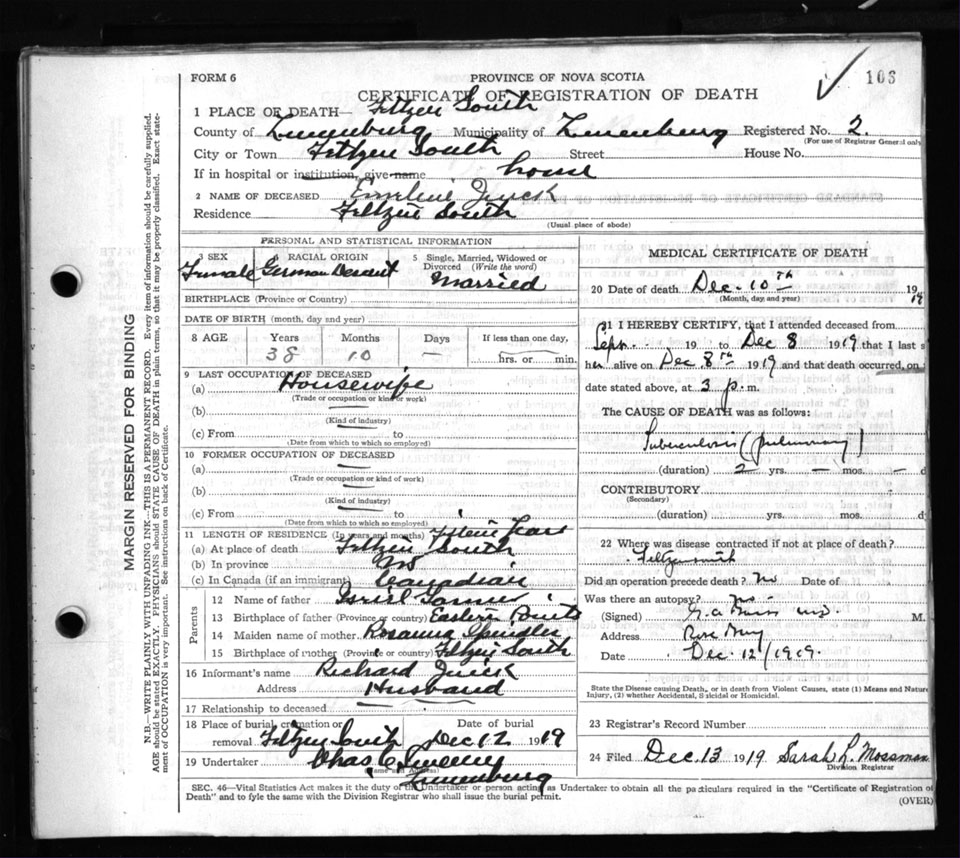 FORM 6
PROVINCE OF NOVA SCOTIA
106
CERTIFICATE OF REGISTRATION OF DEATH
1 PLACE OF DEATH— Feltzen South
County of Lunenburg Municipality of Lunenburg Registered No. 2.
(For use of Registrar General only
City or Town Feltzen South Street House No.
If in hospital or institution, give name house
2 NAME OF DECEASED Emiline
Residence Feltzen South
(Usual place of abode)
PERSONAL AND STATISTICAL INFORMATION
3 SEX RACIAL ORIGIN 5 Single, Married, Widowed or
Divorced (Write the word)
Female German Descent Married
BIRTHPLACE (Province or Country)
DATE OF BIRTH (month, day and year)
8 AGE Years Months Days If less than one day,
38 10 — hrs. or min.
9 LAST OCCUPATION OF DECEASED
(a) Housewife
(Trade or occupation or kind or work)
(b)
(Kind of industry)
(c) From to
(Date from which to which so employed)
10 FORMER OCCUPATION OF DECEASED
(a)
(Trade or occupation or kind of work)
(b)
(Kind of industry)
(c) From to
(Date from which to which so employed)
11 LENGTH OF RESIDENCE (In years and months)
(a) At place of death Feltzen South
(b) In province NS
(c) In Canada (if an immigrant) Canadian
Parents
12 Name of father
13 Birthplace of father (Province or country) Eastern Points
14 Maiden name of mother Rosanna Spindler
15 Birthplace of mother (Province or country) Feltzen South
16 Informant's name Richard
Address Husband
17 Relationship to deceased
18 Place of burial, cremation or Date of burial
removal Feltzen South Dec 12 1919
19 Undertaker Chas C Sweeny
(Name and Address)
Lunenburg
MEDICAL CERTIFICATE OF DEATH
20 Date of death Dec. 10th 1919
(Month, day and year)
21 I HEREBY CERTIFY, that I attended deceased from
Sept. 19 to Dec 8 1919 that I last s
her alive on Dec 8th 1919 and that death occurred, on
date stated above, at 3 p. m.
The CAUSE OF DEATH was as follows:
Tuberculosis (pulmonary)
(duration) 2 yrs. — mos. — d
CONTRIBUTORY
(Secondary)
(duration) yrs. mos. d
22 Where was disease contracted if not at place of death?
Feltzensouth
Did an operation precede death? no Date of
Was there an autopsy? no
(Signed) M.
Address Rose Bay
Date Dec. 12/1919.
State the Disease causing Death, or in death from Violent Causes, state (1) Means and Nature
Injury, (2) whether Accidental, Suicidal or Homicidal.
23 Registrar's Record Number
24 Filed Dec. 13 1919 Sarah L. Mossman
Division Registrar
SEC. 46—Vital Statistics Act makes it the duty of the Undertaker or person acting as Undertaker to obtain all the particulars required in the "Certificate of Registration of
Death" and to fyle the same with the Division Registrar who shall issue the burial permit.
(OVER)
MARGIN RESERVED FOR BINDING
N.B.—WRITE PLAINLY WITH UNFADING INK—THIS IS A PERMANENT RECORD. Every item of information should be carefully supplied.
AGE should be stated EXACTLY. PHYSICIANS should STATE CAUSE OF DEATH in plain terms, so that it may be properly classified. Exact state-
ment of OCCUPATION is very important. See instructions on back of Certificate.